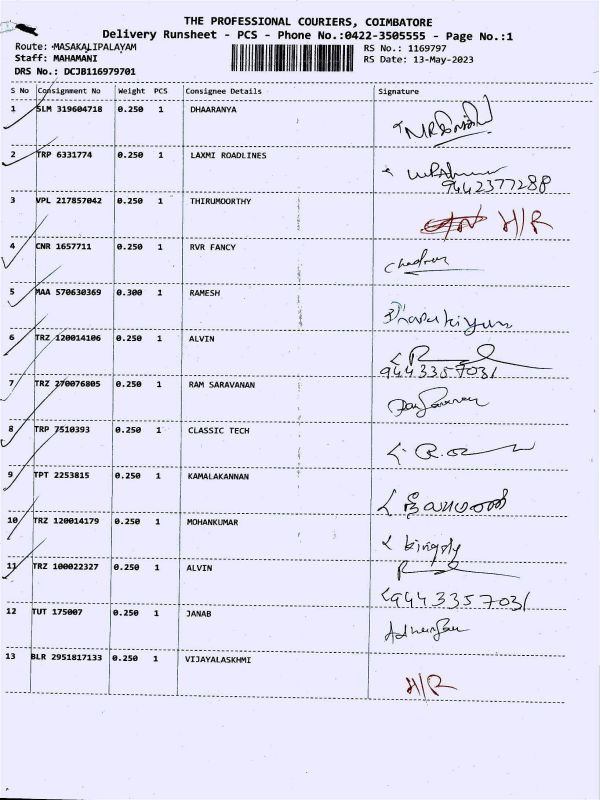 THE PROFESSIONAL COURIERS, COIMBATORE
Delivery Runsheet - PCS - Phone No.:0422-3505555 - Page No.:1
Route: MASAKALIPALAYAM RS No.: 1169797
Staff: MAHAMANI RS Date: 13-May-2023
DRS No.: DCJB116979701
S No Consignment No Weight PCS Consignee Details Signature
1 SLM 319604718 0.250 1 DHAARANYA
2 TRP 6331774 0.250 1 LAXMI ROADLINES
9442377288
3 VPL 217857042 0.250 1 THIRUMOORTHY H/R
4 CNR 1657711 0.250 1 RVR FANCY
5 MAA 570630369 0.300 1 RAMESH
6 TRZ 120014106 0.250 1 ALVIN
9443357031
7 TRZ 270076805 0.250 1 RAM SARAVANAN
8 TRP 7510393 0.250 1 CLASSIC TECH
9 TPT 2253815 0.250 1 KAMALAKANNAN
10 TRZ 120014179 0.250 1 MOHANKUMAR
11 TRZ 100022327 0.250 1 ALVIN
9443357031
12 TUT 175007 0.250 1 JANAB
13 BLR 2951817133 0.250 1 VIJAYALASKHMI
H/R